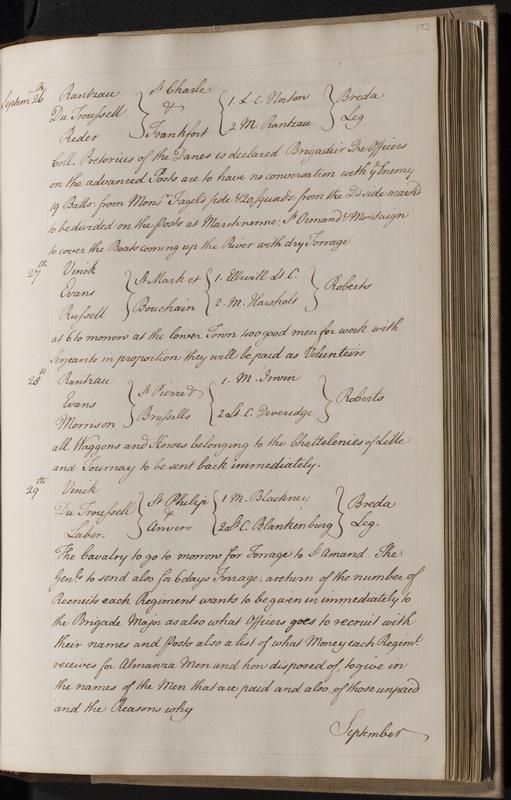 123
Septem 26th Rantzau St Charle 1. L. C. Norton Breda
Du Troussell & 2 M. Rantzau Leg
Reder Frankfort
Coll. Pretorius of the Danes is declared Brigadier The Officers
on the advanced Posts are to have no conversation with ye Enemy
19 Batts: from Monsr Fagels side & 20 squads: from the D: side
to be divided on the Posts at Marchienne, St Amand & Mortaign
to cover the Boats coming up the River with dry Forrage
27th Vinck St Mark et 1. Ellwill Lt. C. Roberts
Evans Bouchain 2. M. Harsholt
Russell
at 6 to morow at the lower Town 400 good men for work with
Serjeants in proportion they will be paid as Volunteirs
28th Rantzau St Pierre & 1. M. Irwin Roberts
Evans Brussells 2 Lt. C. Deveridge
Morrison
all Waggons and Horses belonging to the Chattelenies of Lille
and Tournay to be sent back immediately.
29th Vinck St Philip 1 M. Blackney Breda
Du Troussell & 2 Lt. C. Blankenburg Leg.
Laber. Anvers
The Cavalry to go to morrow for Forrage to St Amand. The
Genls to send also for 6 days Forrage. a return of the number of
Recruits each Regiment wants to be given in immediately to
the Brigade Major as also what Officers goes to recruit with
their names and Posts also a list of what Money each Regimt.
receives for Almanza Men and how disposed of, to give in
the names of the Men that are paid and also of those unpaid
and the Reasons why
September